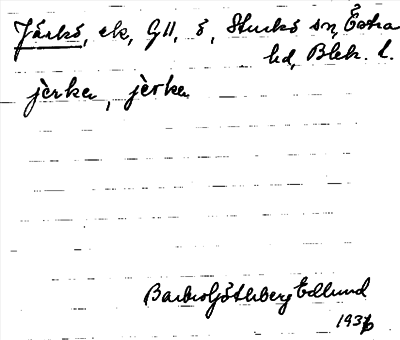 Järkö, ek, GH, ö, Sturkö sn, Östra
hd, Blek. l.
jèrka, jèrka
Barbro Göthberg Edlund
1936